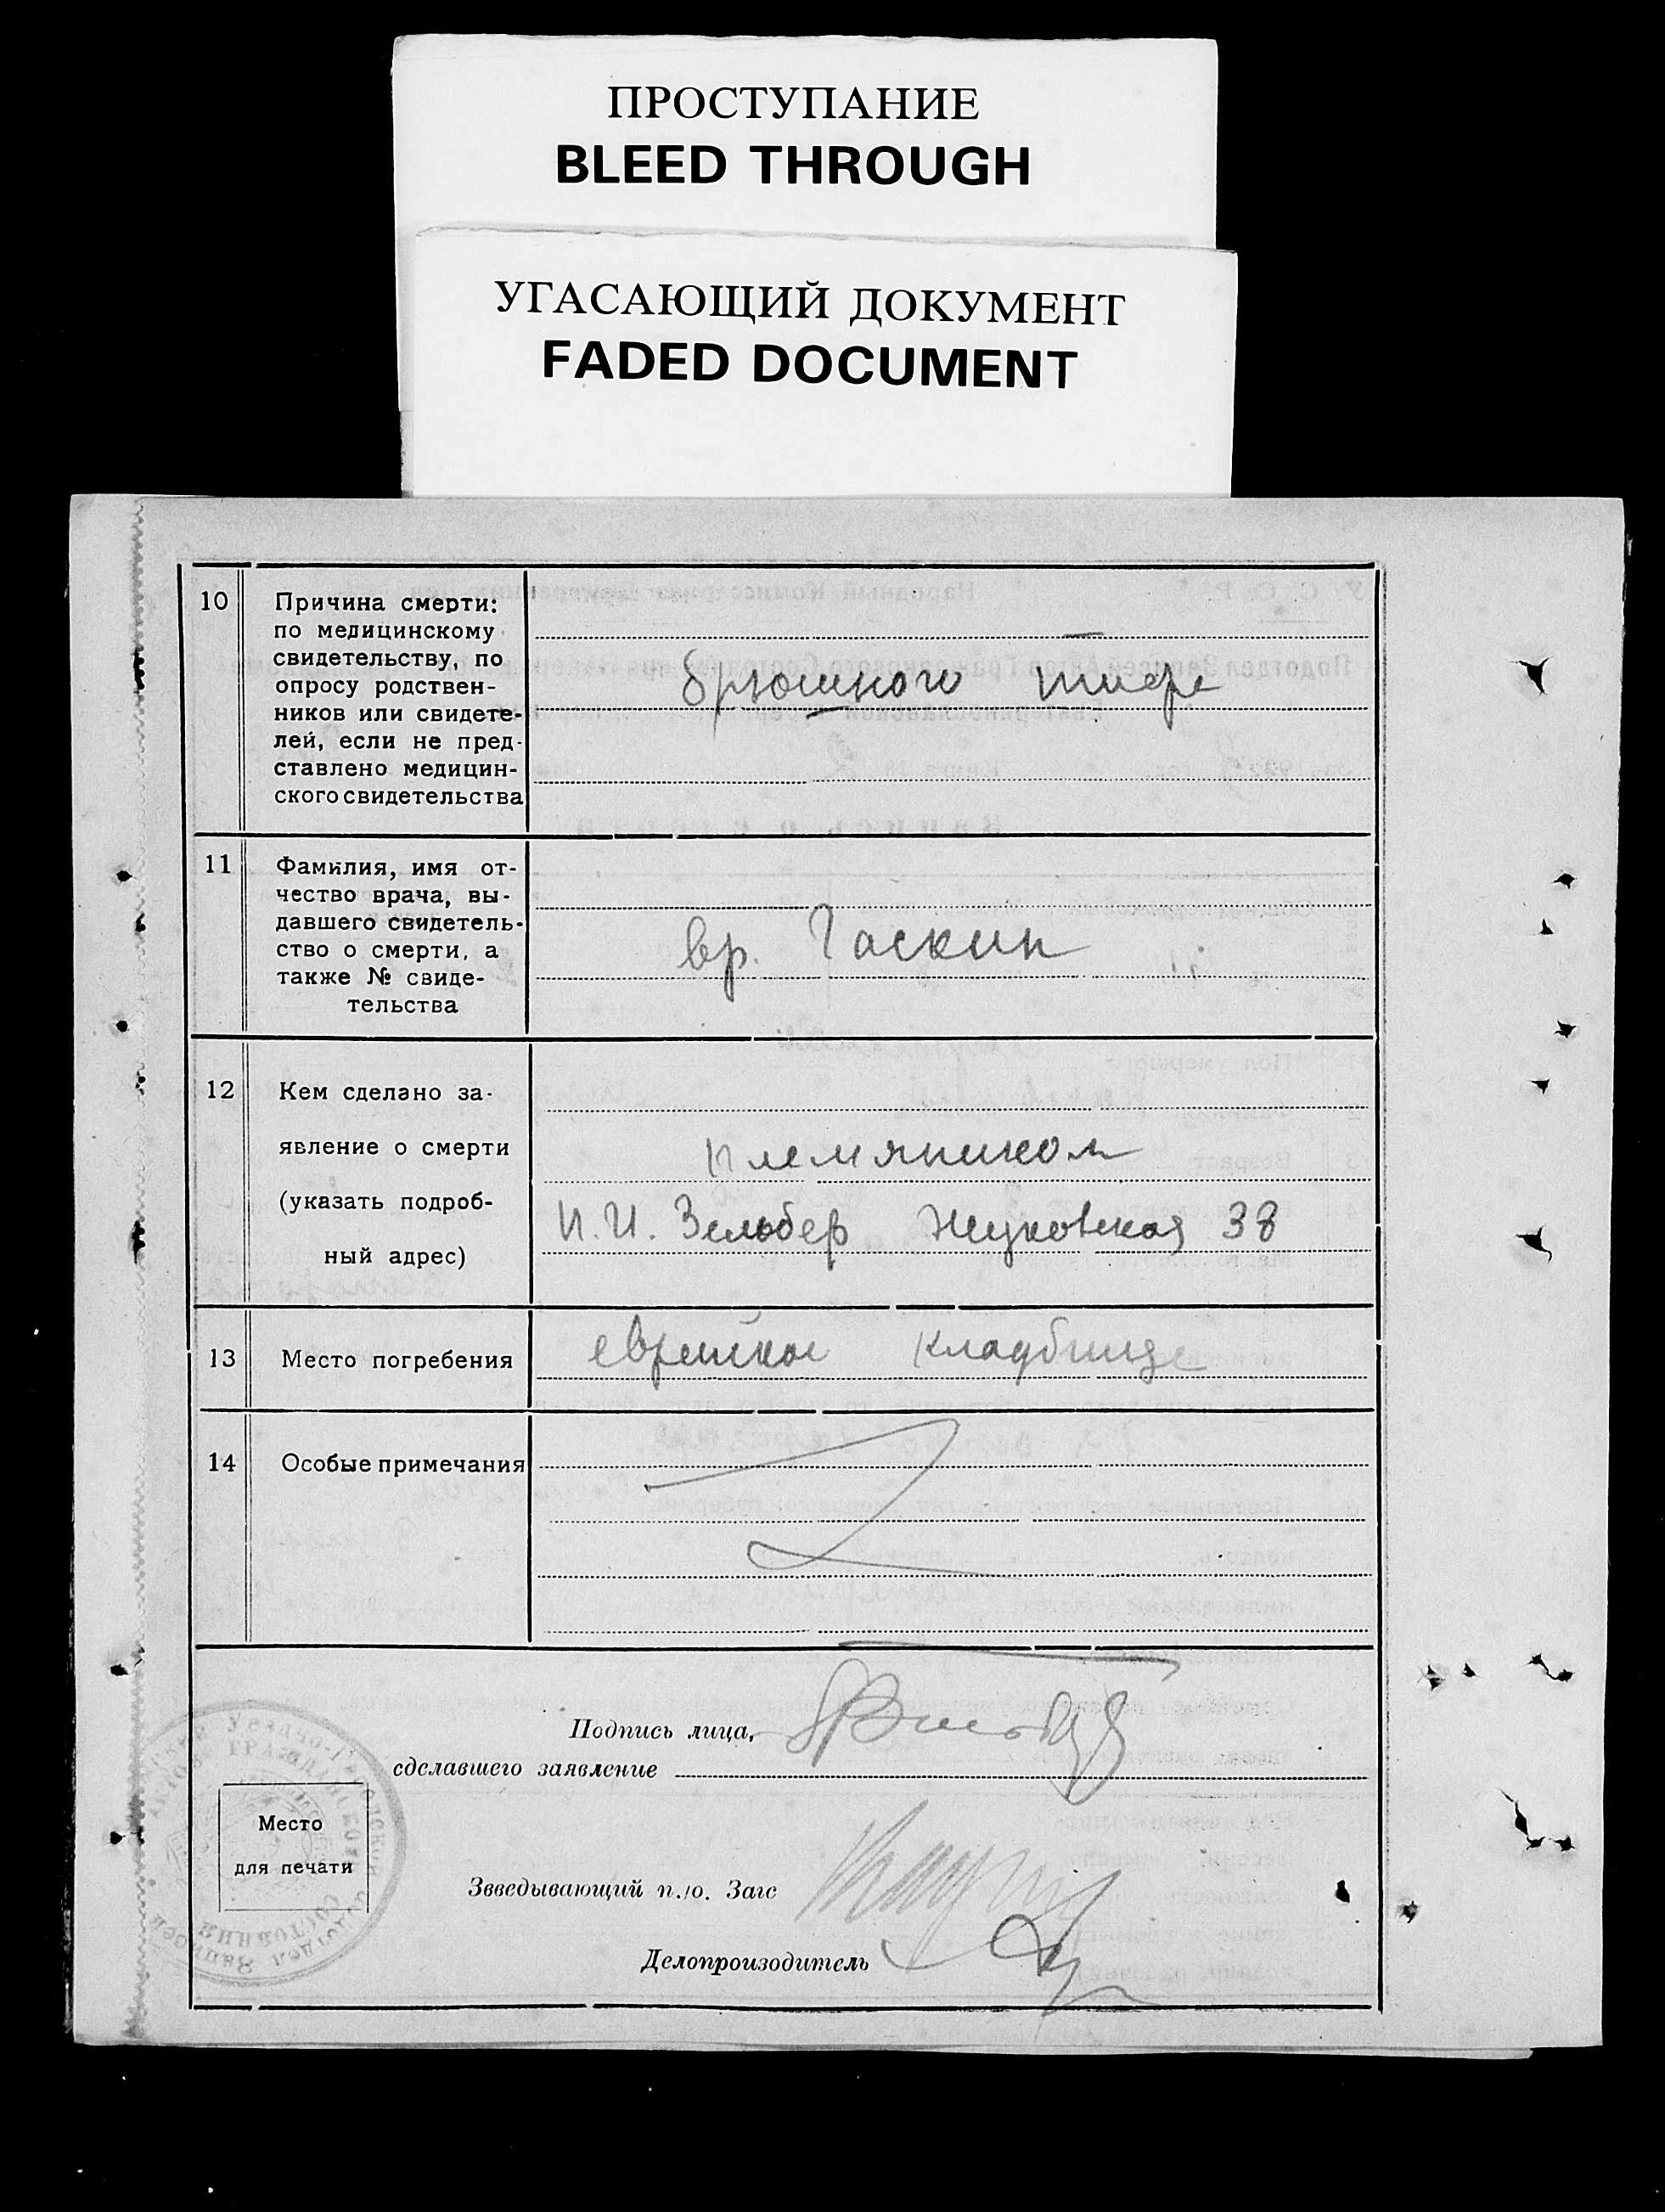 ПРОСТУПАНИЕ
BLEED THROUGH
УГАСАЮЩИЙ ДОКУМЕНТ
FADED DOCUMENT
10
Причина смерти:
по медицинскому
свидетельству, по
опросу родствен-
ников или свидете-
лей, если не пред-
ставлено медицин-
ского свидетельства
брюшного тифа
11
Фамилия, имя от-
чество врача, вы-
давшего свидетель-
ство о смерти, а
также № свиде-
тельства
вр. Гаскин
12
Кем сделано за-
явление о смерти
(указать подроб-
ный адрес)
племянником
И. И. Зельбер Жуковская 38
13
Место погребения
еврейское кладбище
14
Особые примечания
Подпись лица,
сделавшего заявление
Место
для печати
Зeведывающий п.|о. Загс
Делопроизводитель